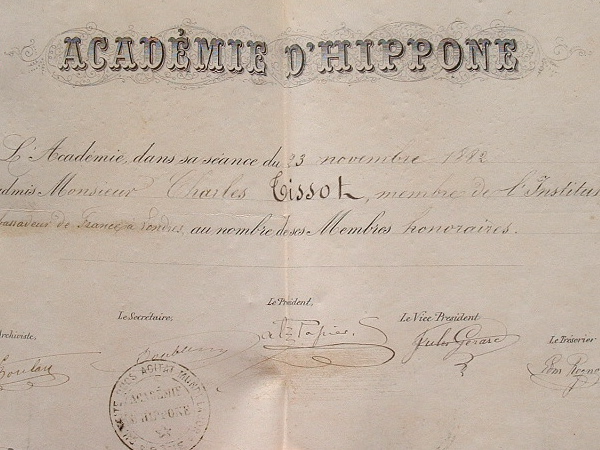 ACADÉMIE D'HIPPONE
L'Académie, dans sa séance du 23 novembre 1882
admis Monsieur Charles Tissot, membre de l'Institut
bassadeur de France, à Londres, au nombre de ses Membres honoraires.
Le Président,
Le Secrétaire, Le Vice Président
Archiviste, Le Trésorier
A. Papier
Doublet Jules Gérard
ACADÉMIE
D'HIPPONE